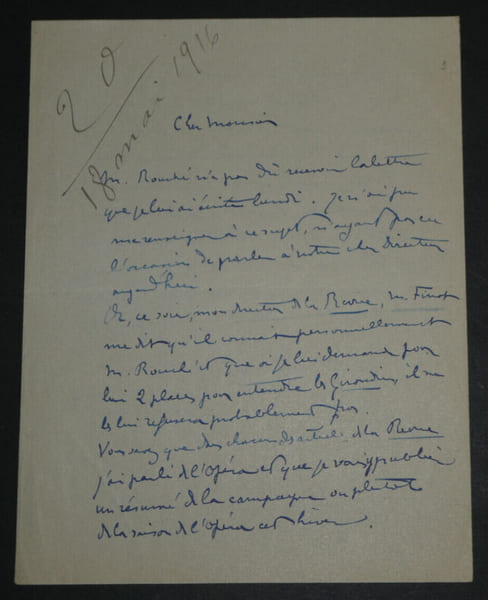 20
18 mai 1916
Cher Monsieur
M. Rouché n'a pas dû recevoir la lettre
que je lui ai écrite lundi. Je n'ai pu
me renseigner à ce sujet, n'ayant pas eu
l'occasion de parler à notre cher directeur
aujourd'hui.
Or, ce soir, mon directeur de la Revue, M. Finot
me dit qu'il connait personnellement
M. Rouché et que si je lui demande pour
lui 2 places pour entendre les Girondins, il ne
les lui refusera probablement pas.
Vous savez que dans chacun des articles de la Revue
j'ai parlé de l'Opéra et que je vais publier
un résumé de la campagne ou plutôt
de la saison de l'Opéra cet hiver.